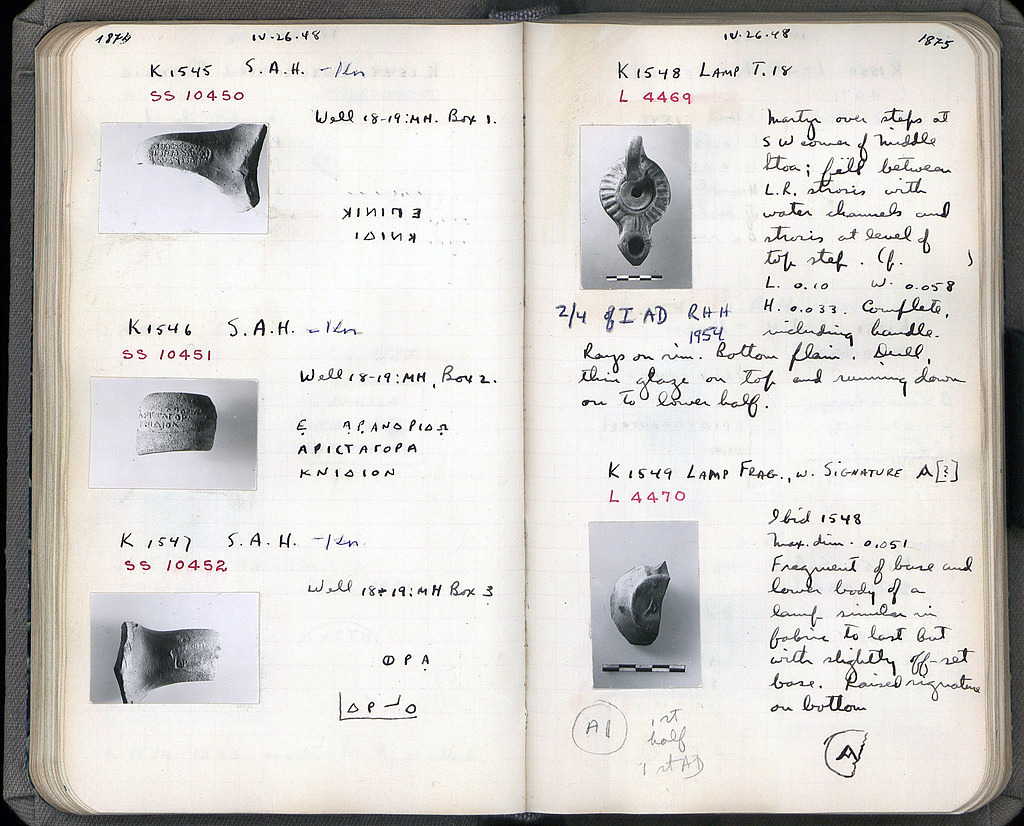 1874
IV-26-48
K 1545 S.A.H. - Kn
SS 10450
Well 18-19:MH. Box 1.
ΕΠΙΝΙΚ
ΚΝΙΔΙ
K 1546 S.A.H. - Kn
SS 10451
Well 18-19:MH, Box 2.
ΑΡΙΣΤΑΓΟΡ
ΚΝΙΔΙΟΝ
Ε ΑΡΑΝΔΡΙΔΩ
ΑΡΙCΤΑΓΟΡΑ
ΚΝΙΔΙΟΝ
K 1547 S.A.H. - Kn
SS 10452
Well 18-19:MH Box 3
ΘΡΑ
1875
IV-26-48
K 1548 LAMP T.18
L 4469
Martyr over steps at
SW corner of Middle
Stoa; fill between
L.R. strosis with
water channels and
strosis at level of
top step. Cf. )
L. 0.10 W. 0.058
H. 0.033. Complete,
including handle.
2/4 of I AD RHH
1954
Rays on rim. Bottom plain. Dull,
thin glaze on top and running down
on to lower half.
K 1549 LAMP FRAG., W. SIGNATURE A[?]
L 4470
Ibid 1548
Max. dim. 0.051
Fragment of base and
lower body of a
lamp similar in
fabric to last but
with slightly off-set
base. Raised signature
on bottom
A
A1
1st
half
1st AD